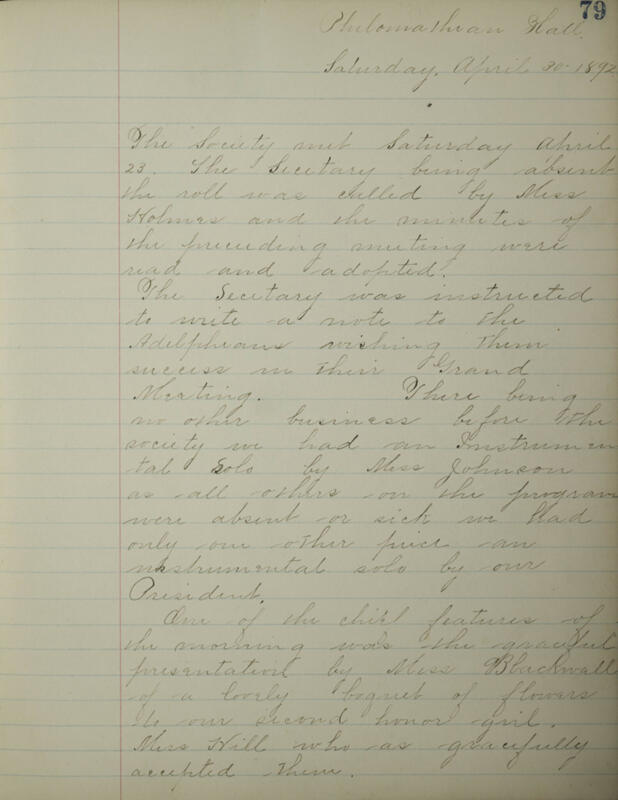 79
Philomathean Hall.
Saturday, April 30-1892
The Society met Saturday April
23. The Secetary being absent
the roll was called by Miss
Holmes and the minutes of
the preceeding meeting were
read and adopted.
The Secetary was instructed
to write a note to the
Adelpheans wishing them
success in their Grand
Meeting. There being
no other business before the
society we had an Instrumen
tal Solo by Miss Johnson
as all others on the program
were absent or sick we had
only one other piece an
instrumental solo by our
President.
One of the chief features of
the morning was the graceful
presentation by Miss Blackwall
of a lovely boquet of flowers
to our second honor girl.
Miss Hill who as gracefully
accepted them.